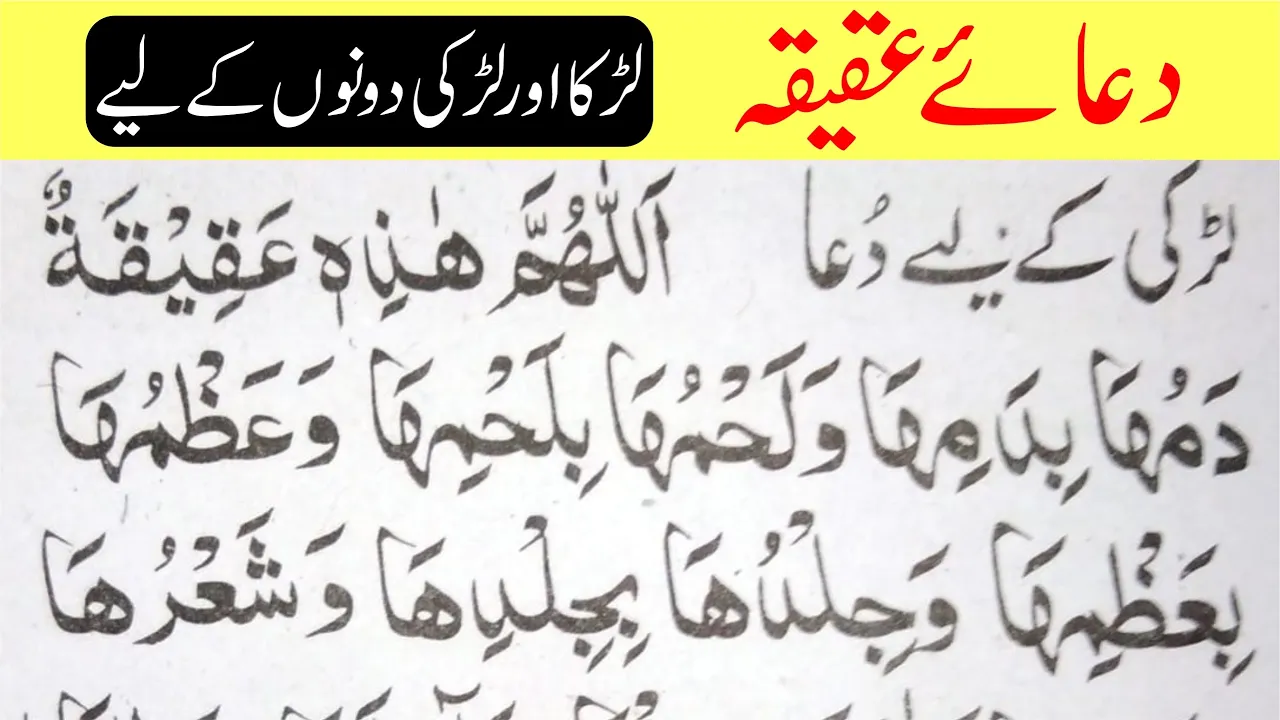 دعائے عقیقہ
لڑکا اور لڑکی دونوں کے لیے
لڑکی کے لیے دُعا اَللّٰهُمَّ هٰذِهٖ عَقِيْقَةٌ
دَمُهَا بِدَمِهَا وَلَحْمُهَا بِلَحْمِهَا وَعَظْمُهَا
بِعَظْمِهَا وَجِلْدُهَا بِجِلْدِهَا وَشَعْرُهَا